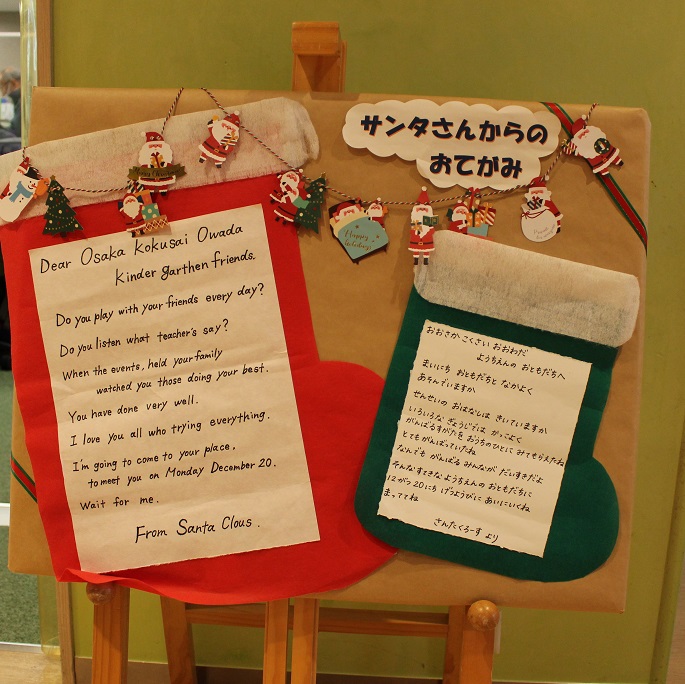 サンタさんからの
おてがみ
Dear Osaka Kokusai Owada
Kinder garthen friends.
Do you play with your friends every day?
Do you listen what teacher's say?
When the events, held your family
watched you those doing your best.
You have done very well.
I love you all who trying everything.
I'm going to come to your place,
to meet you on Monday December 20.
Wait for me.
From Santa Clous.
Happy
holidays
おおさか こくさい おおわだ
ようちえんの おともだちへ
まいにち おともだちと なかよく
あそんでいますか
せんせいの おはなしは きいていますか
いろいろな ぎょうじでは かっこよく
がんばるすがたを おうちのひとに みてもらえたね
とてもがんばっていたね
なんでも がんばる みんなが だいすきだよ
そんな すてきな ようちえんの おともだちに
12がつ20にち げつようびに あいにいくね
まっててね
さんたくろーす より